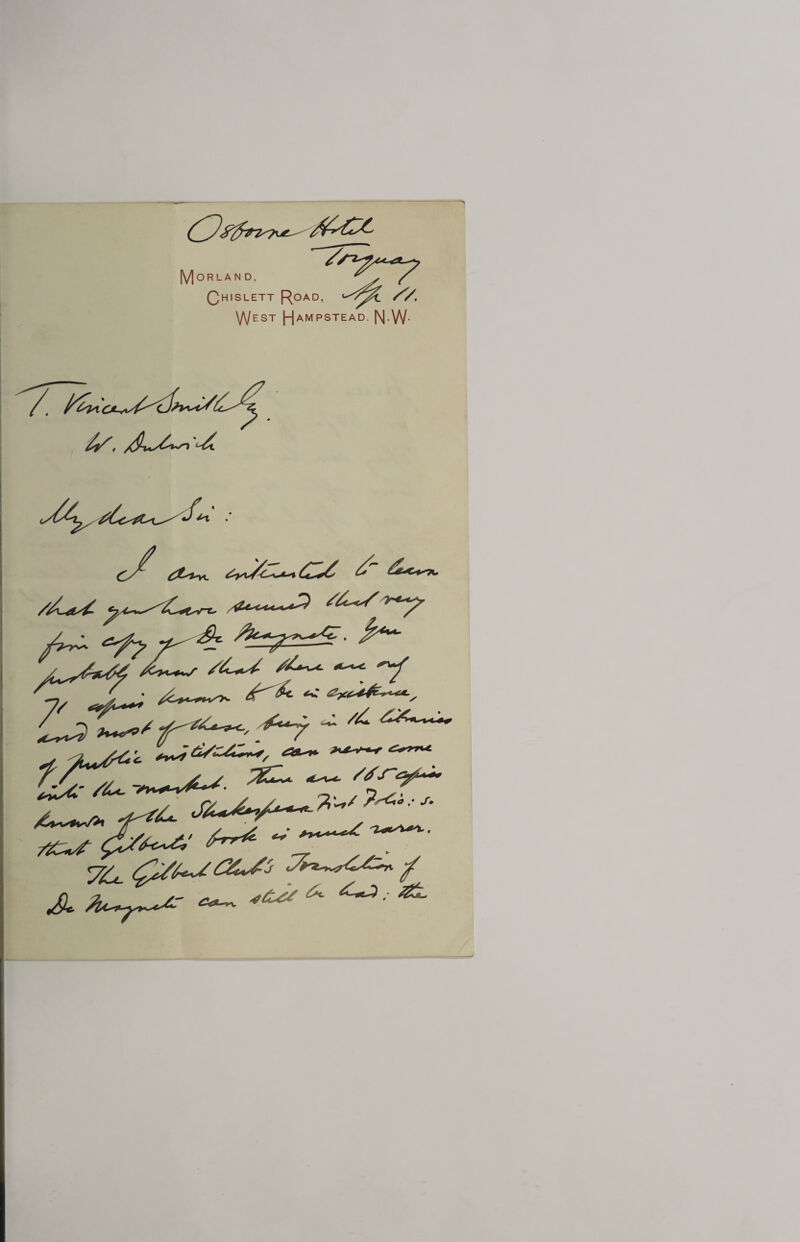 Osborne Hotel
Torquay
MORLAND,
CHISLETT ROAD,
WEST HAMPSTEAD. N.W.
11.
T. Vincent Smith Esq.
W.
My dear Sir :
I am interested to learn
that you have secured that very
fine copy of De Humynate. You
probably know that there are only
7 copies known to be in existence,
and most of these, being in the Libraries
of public institutions, can never come
into the market. There are 185 copies
known of the Shakespeare First Folio: so
that Gilbert's book is much rarer.
The Gilbert Club's Translation of
De Magnete can still be had: the